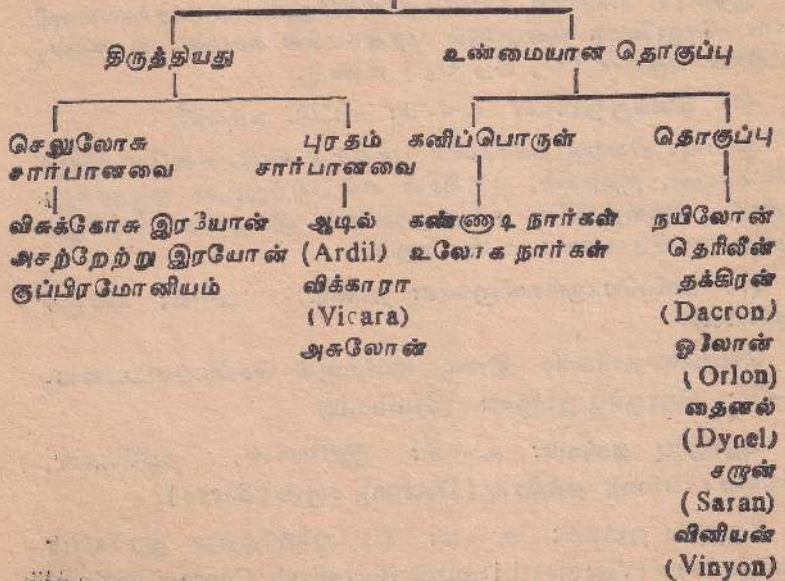 திருத்தியது
உண்மையான தொகுப்பு
செலுலோசு சார்பானவை
புரதம் சார்பானவை
கனிப்பொருள்
தொகுப்பு
விசுக்கோசு இரயோன்
அசற்றேற்று இரயோன்
குப்பிரமோனியம்
ஆடில்
(Ardil)
விக்காரா
(Vicara)
அசுலோன்
கண்ணாடி நார்கள்
உலோக நார்கள்
நயிலோன்
தெரிலீன்
தக்கிரன்
(Dacron)
ஓலோன்
(Orlon)
தைனல்
(Dynel)
சறன்
(Saran)
வினியன்
(Vinyon)